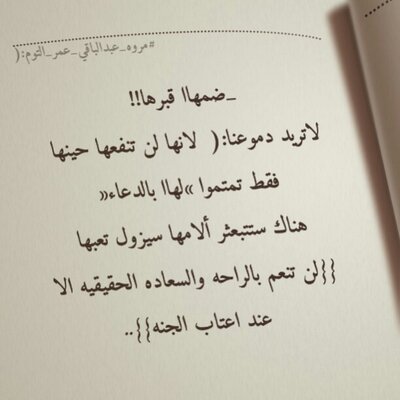 #مروه_عبدالباقي_عمر_التوم:(
_ضمهاا قبرها!!
لاتريد دموعنا:( لانها لن تنفعها حينها
فقط تمتموا »لهاا بالدعاء«
هناك ستتبعثر ألامها سيزول تعبها
{{لن تنعم بالراحه والسعاده الحقيقيه الا
عند اعتاب الجنه}}..